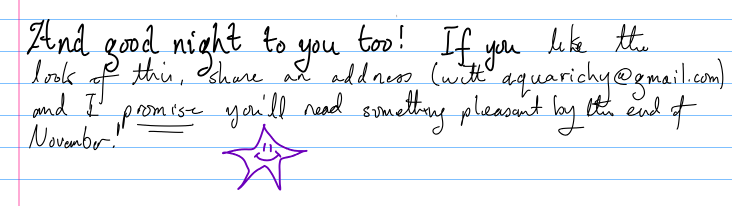 And good night to you too! If you like the
look of this, share an address (with aquarichy@gmail.com)
and I promise you'll read something pleasant by the end of
November!